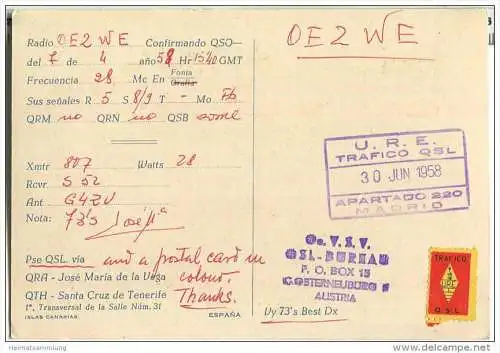 Radio OE2 WE Confirmando QSO
del 7 de 4 año 58 Hr 1540 GMT
Frecuencia 28 Mc En Fonía
Grafía
Sus señales R 5 S 8/9 T - Mo Fb
QRM no QRN no QSB some
Xmtr 807 Watts 28
Rcvr S 52
Ant G4ZU
Nota: 73's José Mª
Pse QSL. vía and a postal card in
QRA - José María de la Vega colour.
QTH - Santa Cruz de Tenerife Thanks.
1ª, Transversal de la Salle Núm. 31
ISLAS CANARIAS. ESPAÑA
OE2 WE
U. R. E.
TRAFICO QSL
30 JUN 1958
APARTADO 220
MADRID
Oe. V. S. V.
QSL-BUREAU
P. O. BOX 15
AUSTRIA
Vy 73's Best Dx
TRAFICO
URE
QSL
Heimatsammlung